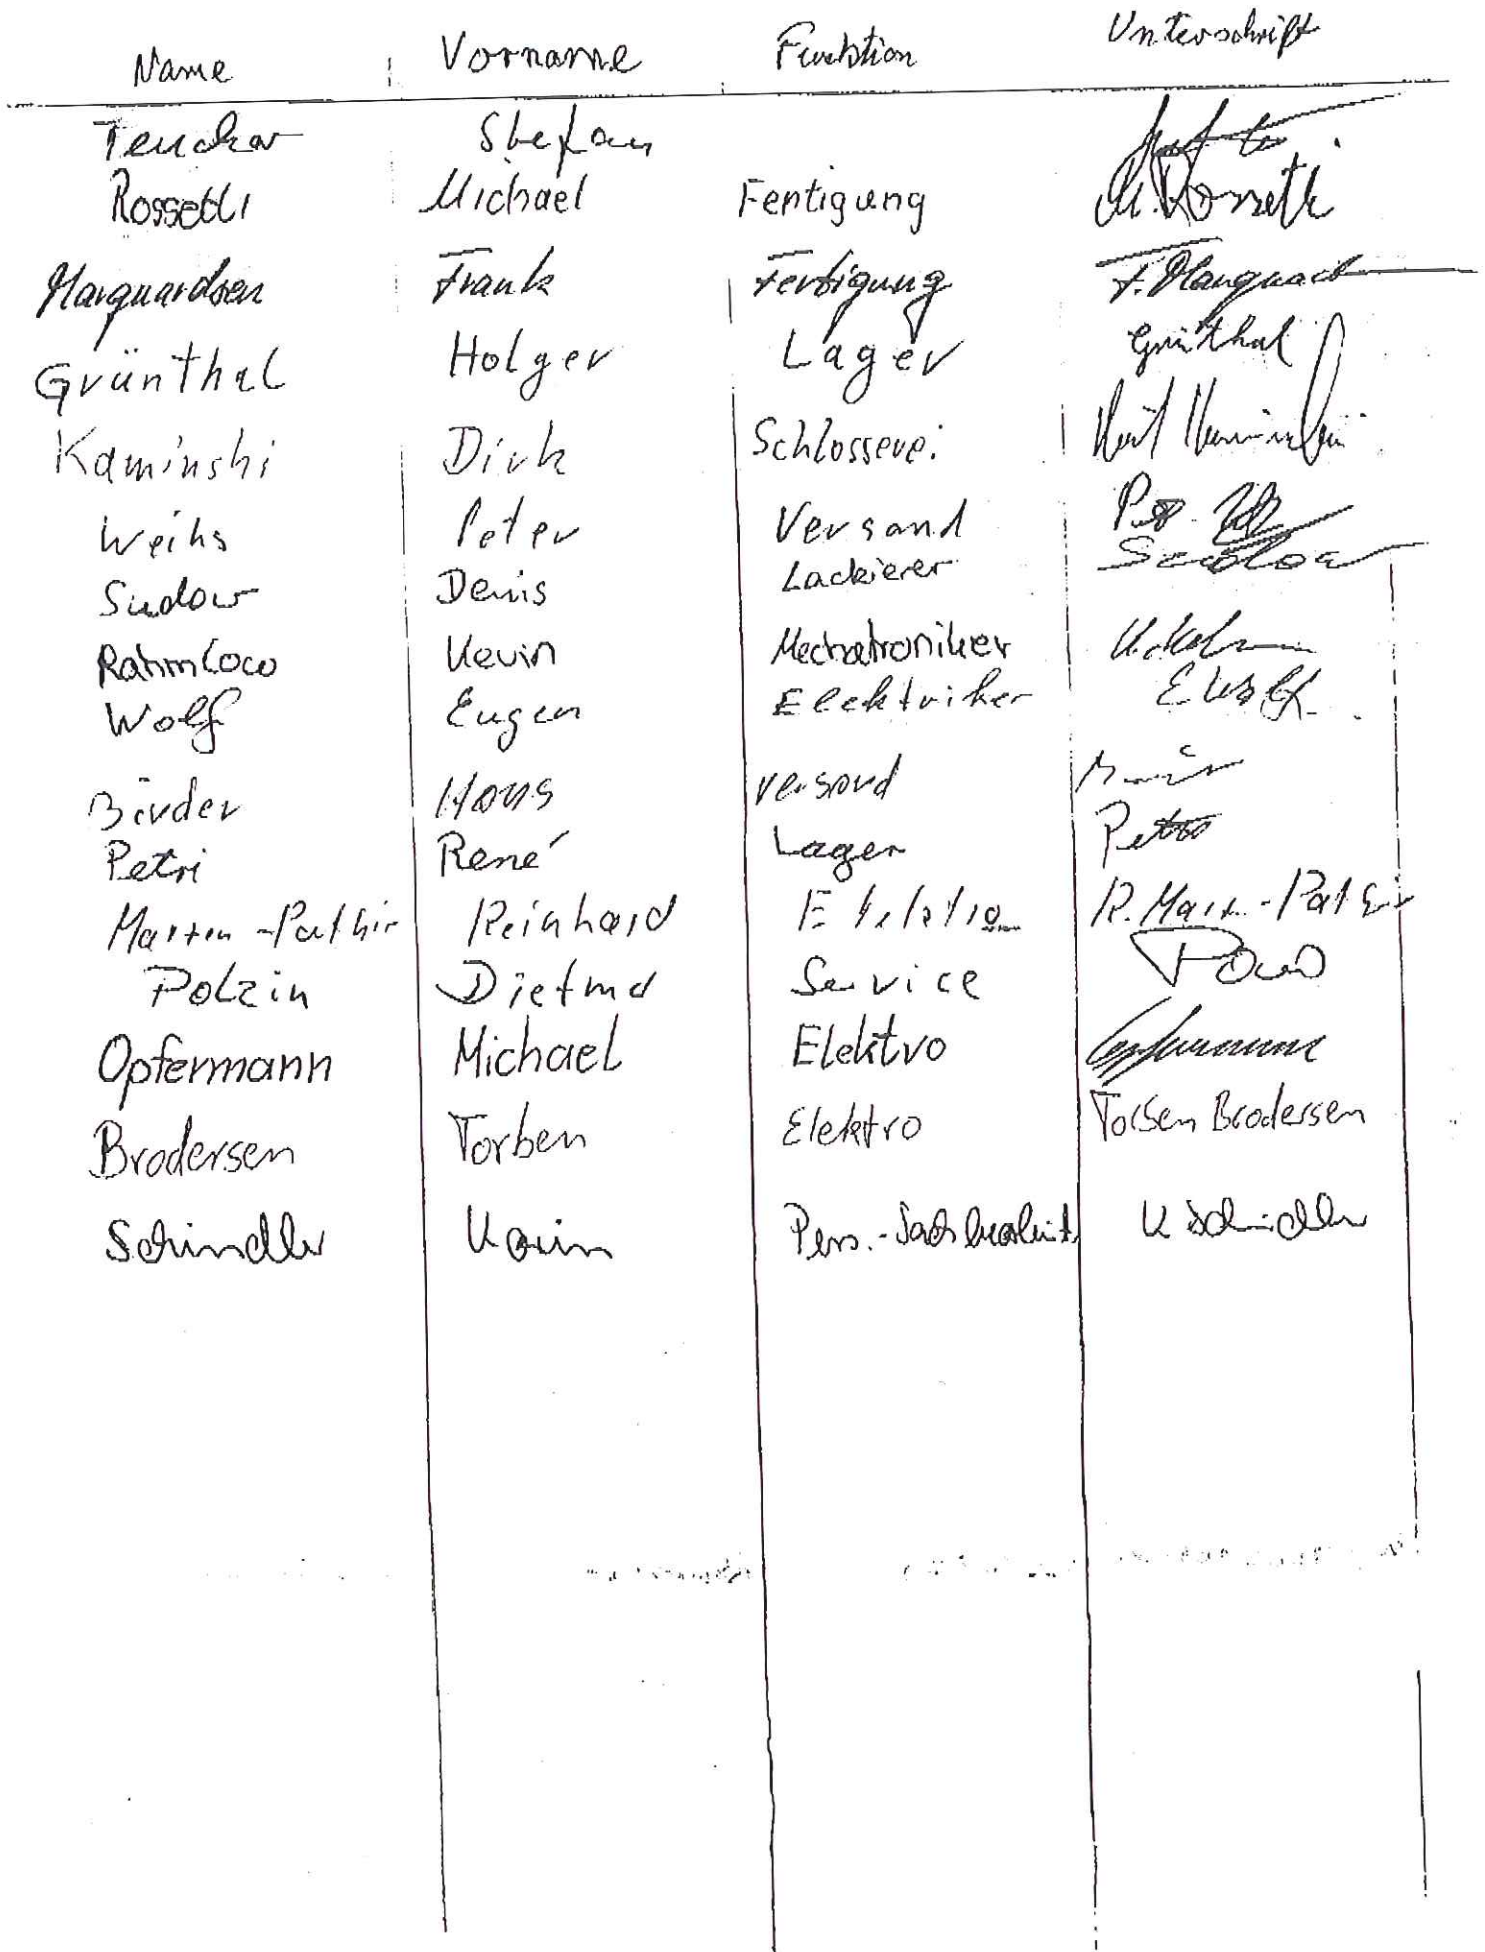 Name Vorname Funktion Unterschrift
Stefan
Rossetti Michael Fertigung M. Rossetti
Marquardsen Frank Fertigung F. Marquardt
Grünthal Holger Lager Grünthal
Kaminski Dirk Schlosserei
Weihs Peter Versand
Sudow Denis Lackierer Sudow
Rahmlow Kevin Mechatroniker
Wolf Eugen Elektriker E Wolf
Binder Hans Versand
Petri René Lager Petri
Reinhard R.
Polzin Dietmar Service
Opfermann Michael Elektro Opfermann
Brodersen Torben Elektro Torben Brodersen
Schindler Karin Pers.-Sachbearbeit. K Schindler